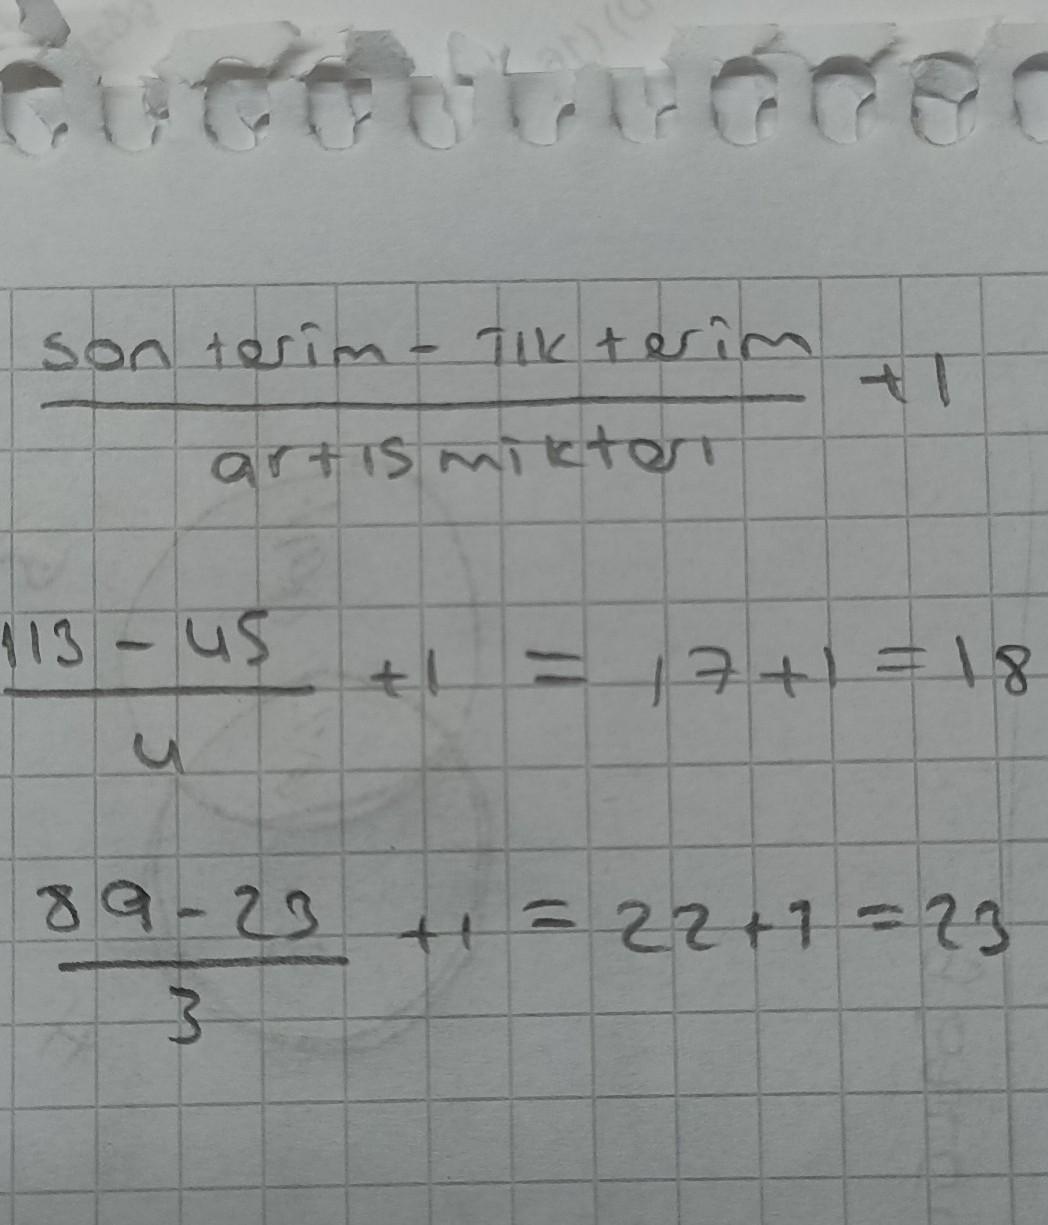 son terim - ilk terim
+1
artış miktarı
113 - 45
+1 = 17+1 = 18
4
89 - 23
+1 = 22+1 = 23
3